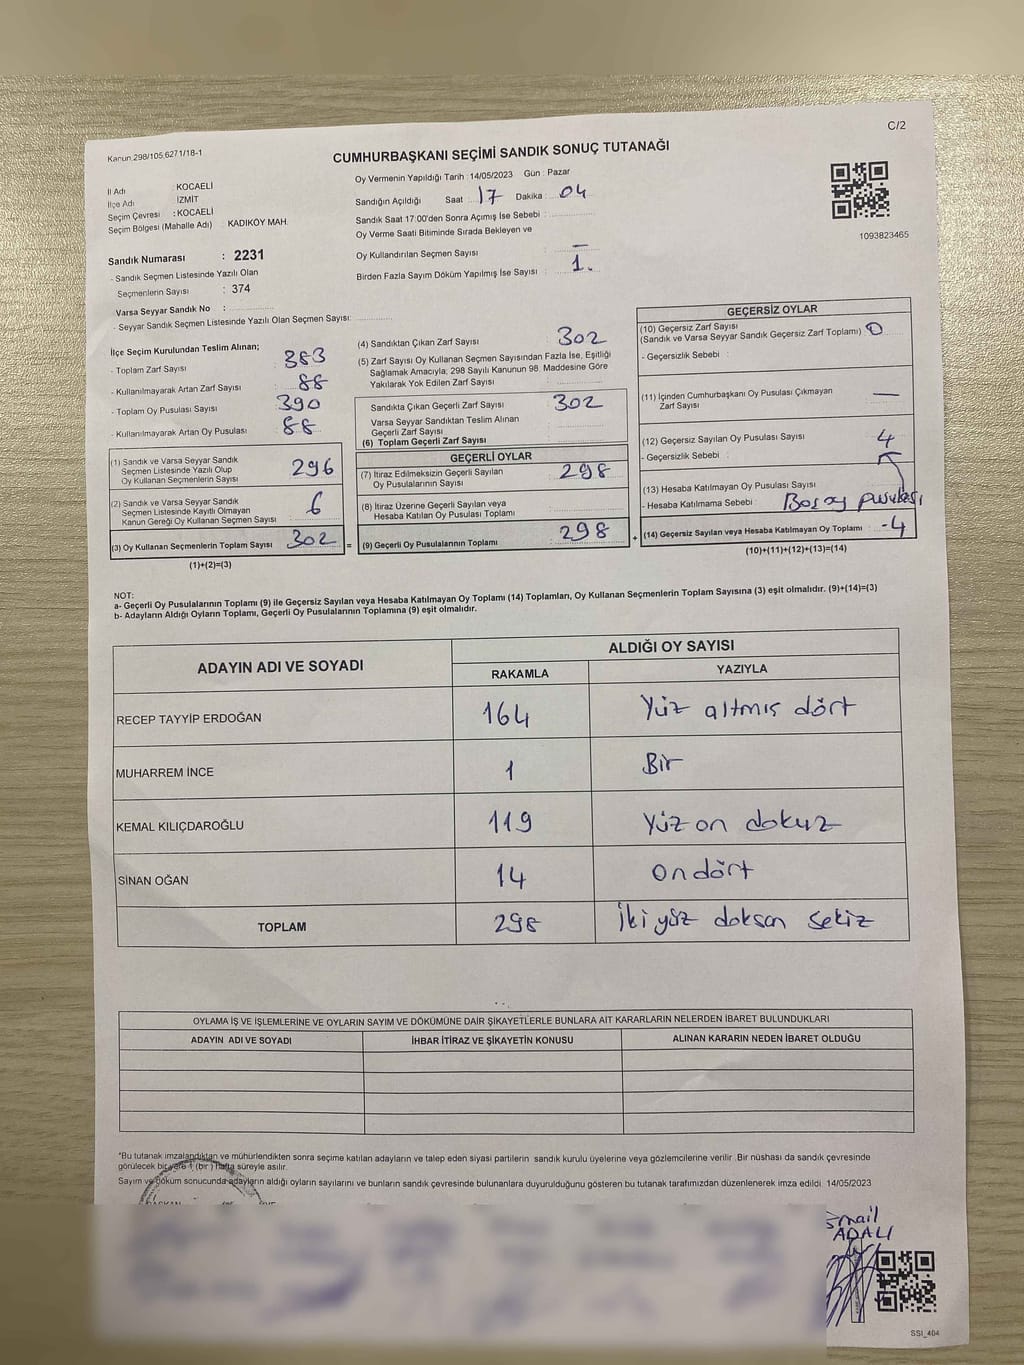 C/2
Kanun.298/105,6271/18-1
CUMHURBAŞKANI SEÇİMİ SANDIK SONUÇ TUTANAĞI
İl Adı : KOCAELİ
İlçe Adı İZMİT
Seçim Çevresi : KOCAELİ
Seçim Bölgesi (Mahalle Adı) : KADIKÖY MAH.
Oy Vermenin Yapıldığı Tarih :14/05/2023 Gün : Pazar
Sandığın Açıldığı Saat : 17 Dakika : 04
Sandık Saat 17:00'den Sonra Açımış İse Sebebi :
Oy Verme Saati Bitiminde Sırada Bekleyen ve
Oy Kullandırılan Seçmen Sayısı : —
Birden Fazla Sayım Döküm Yapılmış İse Sayısı : 1.
1093823465
Sandık Numarası : 2231
- Sandık Seçmen Listesinde Yazılı Olan
Seçmenlerin Sayısı : 374
- Varsa Seyyar Sandık No :
- Seyyar Sandık Seçmen Listesinde Yazılı Olan Seçmen Sayısı:
İlçe Seçim Kurulundan Teslim Alınan;
- Toplam Zarf Sayısı : 383
- Kullanılmayarak Artan Zarf Sayısı : 88
- Toplam Oy Pusulası Sayısı : 390
- Kullanılmayarak Artan Oy Pusulası : 88
(1) Sandık ve Varsa Seyyar Sandık
Seçmen Listesinde Yazılı Olup
Oy Kullanan Seçmenlerin Sayısı : 296
(2) Sandık ve Varsa Seyyar Sandık
Seçmen Listesinde Kayıtlı Olmayan
Kanun Gereği Oy Kullanan Seçmen Sayısı : 6
(3) Oy Kullanan Seçmenlerin Toplam Sayısı : 302 =
(1)+(2)=(3)
(4) Sandıktan Çıkan Zarf Sayısı : 302
(5) Zarf Sayısı Oy Kullanan Seçmen Sayısından Fazla İse, Eşitliği
Sağlamak Amacıyla; 298 Sayılı Kanunun 98. Maddesine Göre
Yakılarak Yok Edilen Zarf Sayısı :
Sandıkta Çıkan Geçerli Zarf Sayısı : 302
Varsa Seyyar Sandıktan Teslim Alınan
Geçerli Zarf Sayısı :
(6) Toplam Geçerli Zarf Sayısı
GEÇERLİ OYLAR
(7) İtiraz Edilmeksizin Geçerli Sayılan
Oy Pusulalarının Sayısı : 298
(8) İtiraz Üzerine Geçerli Sayılan veya
Hesaba Katılan Oy Pusulası Toplamı :
(9) Geçerli Oy Pusulalarının Toplamı : 298 +
GEÇERSİZ OYLAR
(10) Geçersiz Zarf Sayısı
(Sandık ve Varsa Seyyar Sandık Geçersiz Zarf Toplamı) : 0
- Geçersizlik Sebebi :
(11) İçinden Cumhurbaşkanı Oy Pusulası Çıkmayan
Zarf Sayısı : —
(12) Geçersiz Sayılan Oy Pusulası Sayısı : 4
- Geçersizlik Sebebi :
(13) Hesaba Katılmayan Oy Pusulası Sayısı
- Hesaba Katılmama Sebebi : Boş oy pusulası
(14) Geçersiz Sayılan veya Hesaba Katılmayan Oy Toplamı : 4
(10)+(11)+(12)+(13)=(14)
NOT:
a- Geçerli Oy Pusulalarının Toplamı (9) ile Geçersiz Sayılan veya Hesaba Katılmayan Oy Toplamı (14) Toplamları, Oy Kullanan Seçmenlerin Toplam Sayısına (3) eşit olmalıdır. (9)+(14)=(3)
b- Adayların Aldığı Oyların Toplamı, Geçerli Oy Pusulalarının Toplamına (9) eşit olmalıdır.
ADAYIN ADI VE SOYADI
ALDIĞI OY SAYISI
RAKAMLA YAZIYLA
RECEP TAYYİP ERDOĞAN 164 Yüz altmış dört
MUHARREM İNCE 1 Bir
KEMAL KILIÇDAROĞLU 119 Yüz on dokuz
SİNAN OĞAN 14 On dört
TOPLAM 298 İki yüz doksan sekiz
OYLAMA İŞ VE İŞLEMLERİNE VE OYLARIN SAYIM VE DÖKÜMÜNE DAİR ŞİKAYETLERLE BUNLARA AİT KARARLARIN NELERDEN İBARET BULUNDUKLARI
ADAYIN ADI VE SOYADI İHBAR İTİRAZ VE ŞİKAYETİN KONUSU ALINAN KARARIN NEDEN İBARET OLDUĞU
*Bu tutanak imzalandıktan ve mühürlendikten sonra seçime katılan adayların ve talep eden siyasi partilerin sandık kurulu üyelerine veya gözlemcilerine verilir .Bir nüshası da sandık çevresinde
görülecek bir yere 1 (bir ) hafta süreyle asılır.
Sayım ve döküm sonucunda adayların aldığı oyların sayılarını ve bunların sandık çevresinde bulunanlara duyurulduğunu gösteren bu tutanak tarafımızdan düzenlenerek imza edildi. 14/05/2023
İsmail
ADALI
SSI_404